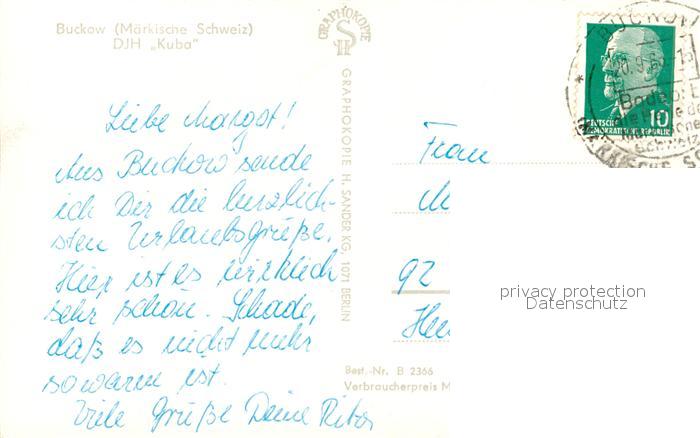 Buckow (Märkische Schweiz)
DJH „Kuba“
Liebe Margot!
Aus Buckow sende
ich Dir die herzlich-
sten Urlaubsgrüße.
Hier ist es wirklich
sehr schön. Schade,
daß es nicht mehr
so warm ist.
Viele Grüße Deine Rita
GRAPHOKOPIE
GRAPHOKOPIE H. SANDER KG, 1071 BERLIN
Best.-Nr. B 2366
Verbraucherpreis M
BUCKOW
MÄRKISCHE S
10
DEUTSCHE
DEMOKRATISCHE REPUBLIK
Frau
M
92
privacy protection
Datenschutz